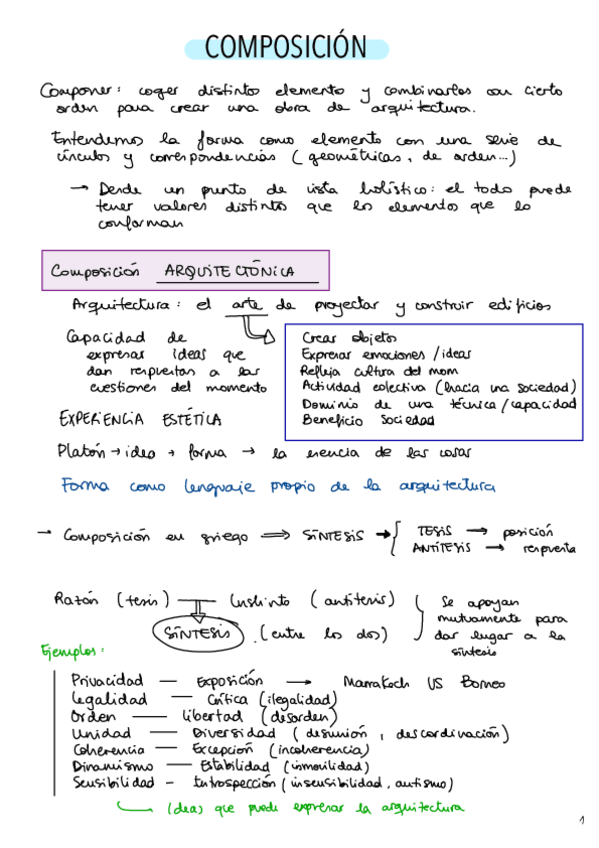 COMPOSICIÓN
Componer: coger distintos elemento y combinarlos con cierto
orden para crear una obra de arquitectura.
Entendemos la forma como elemento con una serie de
vínculos y correspondencias (geométricas, de orden...)
→ Desde un punto de vista holístico: el todo puede
tener valores distintos que los elementos que lo
conforman
Composición ARQUITECTÓNICA
Arquitectura: el arte de proyectar y construir edificios
Capacidad de
expresar ideas que
dan respuestas a las
cuestiones del momento
Crear objetos
Expresar emociones / ideas
Refleja cultura del mom
Actividad colectiva (hacia una sociedad)
Dominio de una técnica / capacidad
Beneficio Sociedad
EXPERIENCIA ESTÉTICA
Platón → idea → forma → la esencia de las cosas
Forma como lenguaje propio de la arquitectura
→ Composición en griego ⟹ SÍNTESIS → { TESIS → posición
ANTÍTESIS → respuesta
Razón (tesis) — Instinto (antítesis)
SÍNTESIS (entre los dos)
Se apoyan
mutuamente para
dar lugar a la
síntesis
Ejemplos:
Privacidad — Exposición → Marrakech VS Borneo
Legalidad — Crítica (ilegalidad)
Orden — libertad (desorden)
Unidad — Diversidad (desunión, descordinación)
Coherencia — Excepción (incoherencia)
Dinamismo — Estabilidad (inmovilidad)
Sensibilidad - Introspección (insensibilidad, autismo)
Ideas que puede expresar la arquitectura
1